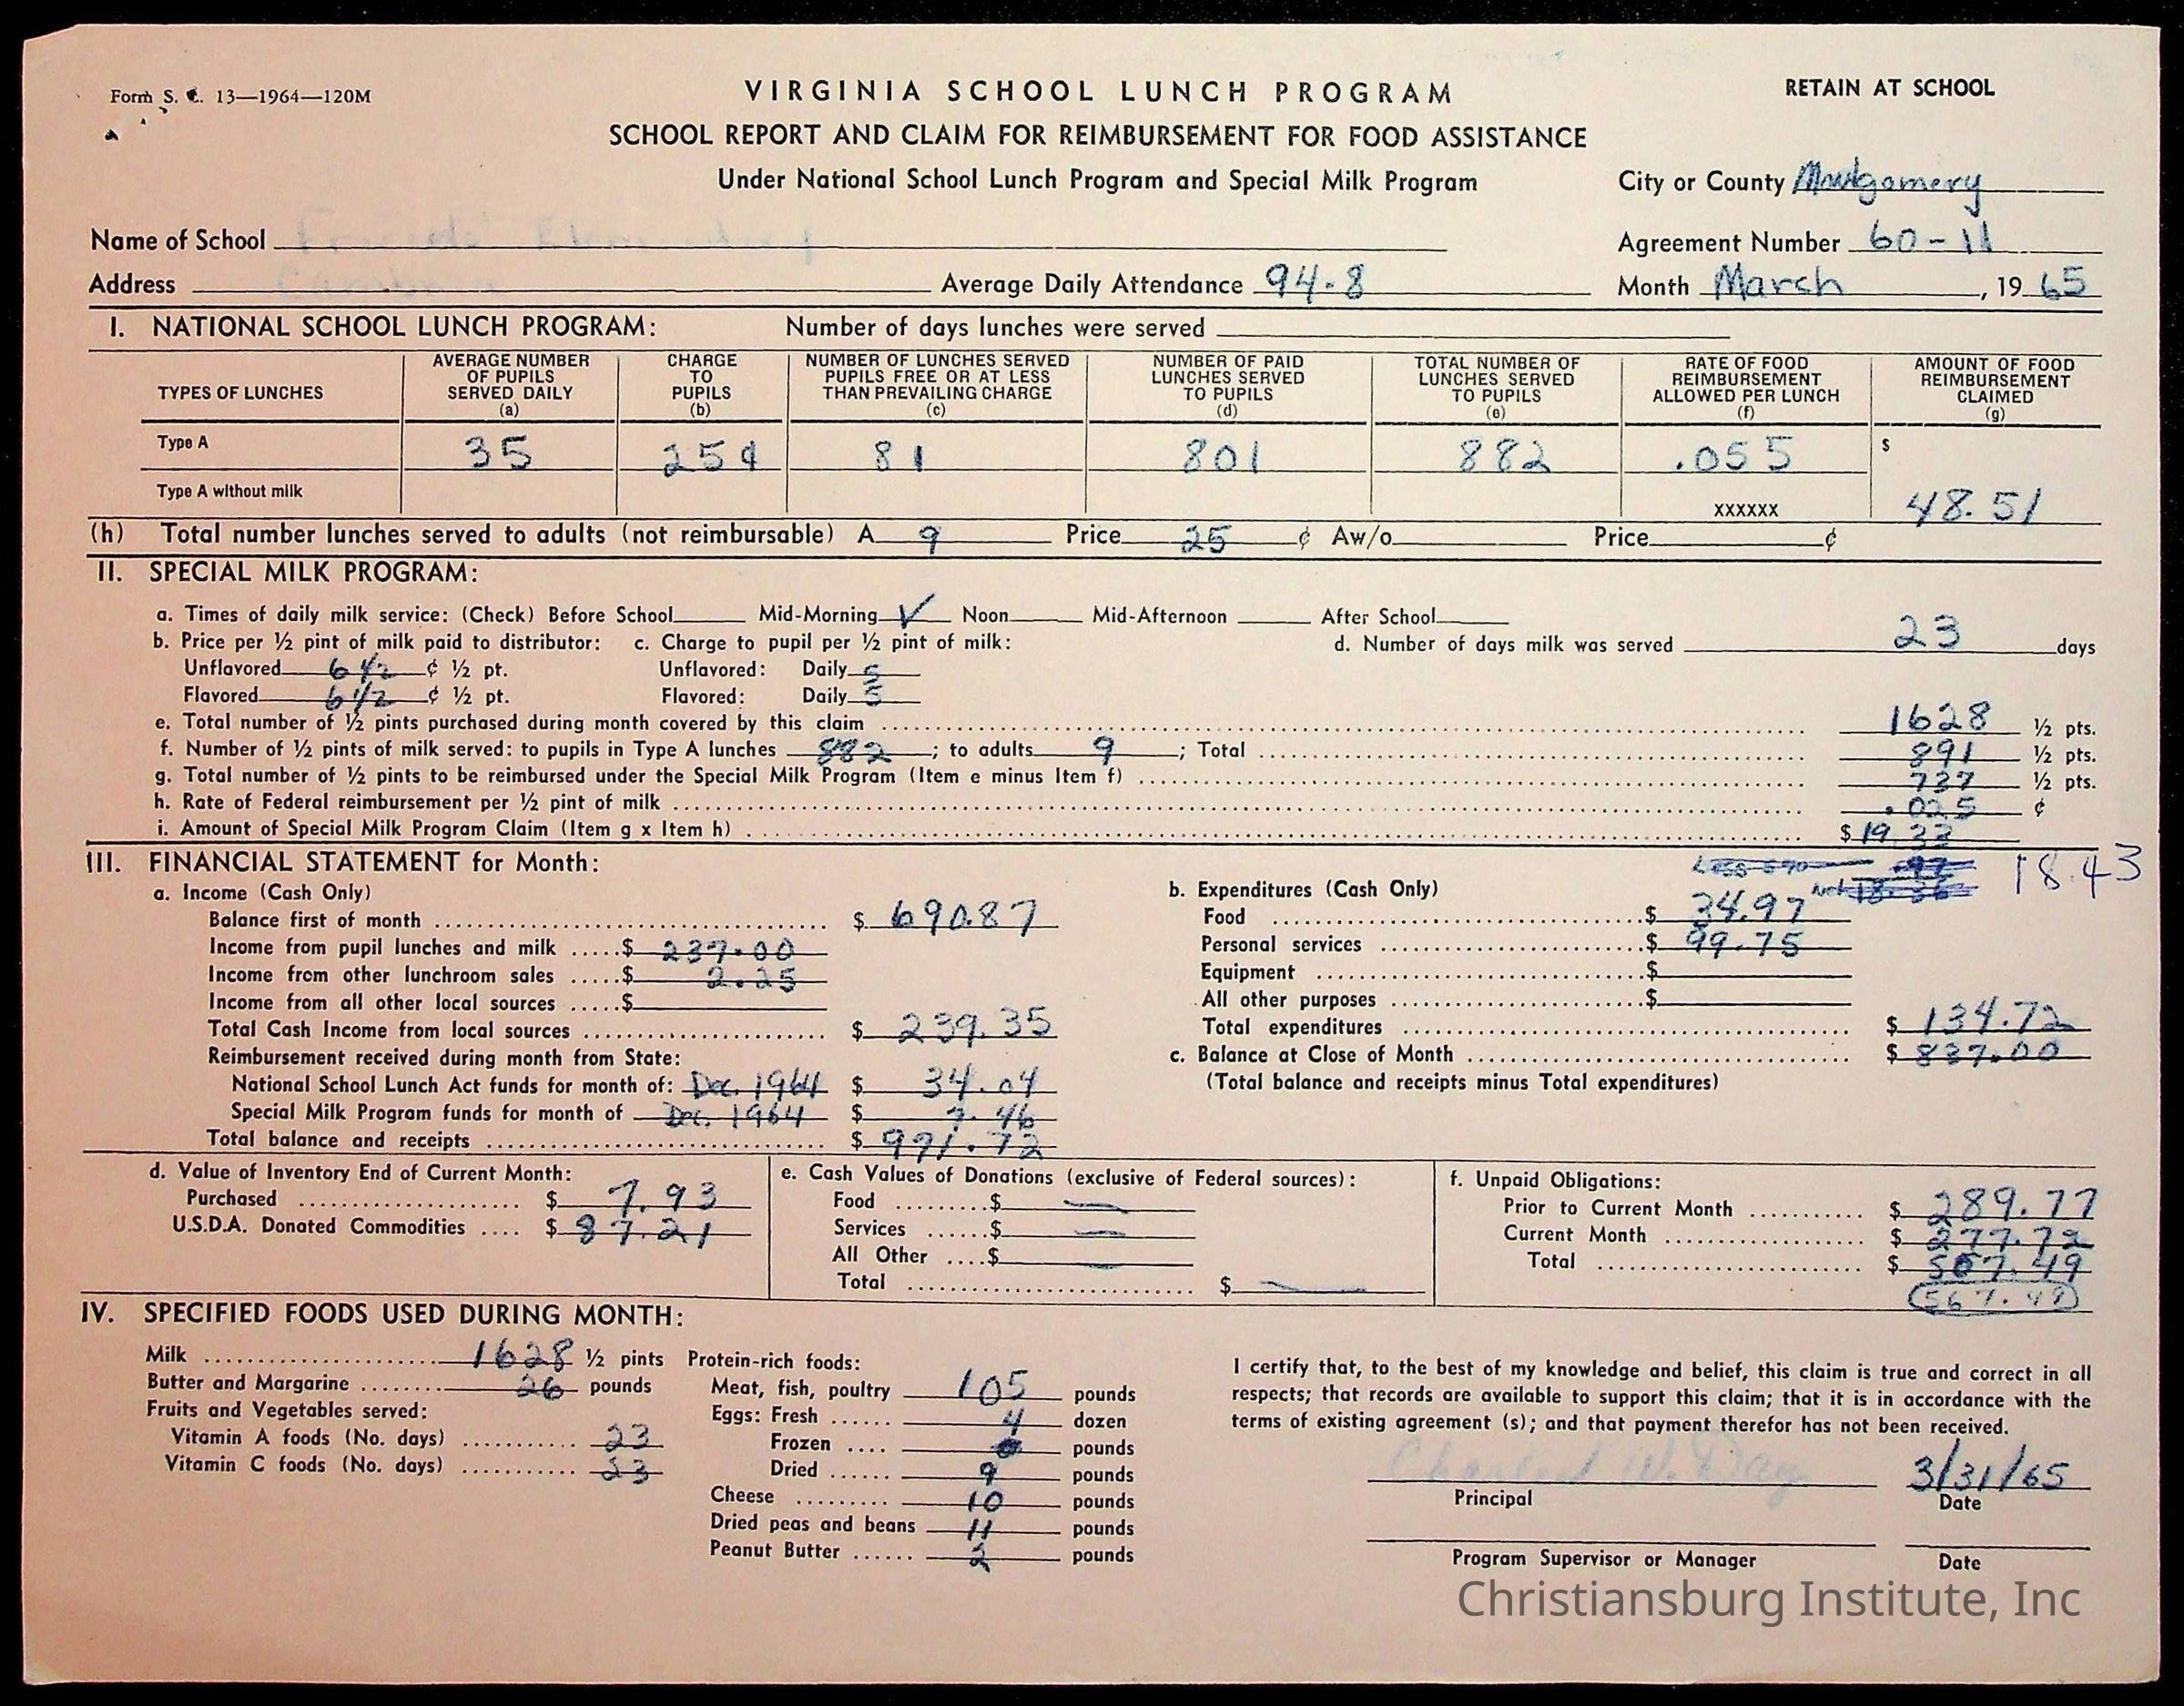 Form S. C. 13—1964—120M
VIRGINIA SCHOOL LUNCH PROGRAM
RETAIN AT SCHOOL
SCHOOL REPORT AND CLAIM FOR REIMBURSEMENT FOR FOOD ASSISTANCE
Under National School Lunch Program and Special Milk Program
City or County Montgomery
Name of School
Agreement Number 60-11
Address
Average Daily Attendance 94.8
Month March, 1965
I. NATIONAL SCHOOL LUNCH PROGRAM: Number of days lunches were served
TYPES OF LUNCHES
AVERAGE NUMBER OF PUPILS SERVED DAILY (a)
CHARGE TO PUPILS (b)
NUMBER OF LUNCHES SERVED PUPILS FREE OR AT LESS THAN PREVAILING CHARGE (c)
NUMBER OF PAID LUNCHES SERVED TO PUPILS (d)
TOTAL NUMBER OF LUNCHES SERVED TO PUPILS (e)
RATE OF FOOD REIMBURSEMENT ALLOWED PER LUNCH (f)
AMOUNT OF FOOD REIMBURSEMENT CLAIMED (g)
Type A 35 25¢ 81 801 882 .055 $
Type A without milk xxxxxx 48.51
(h) Total number lunches served to adults (not reimbursable) A 9 Price 25 ¢ Aw/o Price ¢
II. SPECIAL MILK PROGRAM:
a. Times of daily milk service: (Check) Before School Mid-Morning ✓ Noon Mid-Afternoon After School
b. Price per ½ pint of milk paid to distributor: c. Charge to pupil per ½ pint of milk: d. Number of days milk was served 23 days
Unflavored 6 1/2 ¢ ½ pt. Unflavored: Daily 5
Flavored 6 1/2 ¢ ½ pt. Flavored: Daily 5
e. Total number of ½ pints purchased during month covered by this claim 1628 ½ pts.
f. Number of ½ pints of milk served: to pupils in Type A lunches 882; to adults 9; Total 891 ½ pts.
g. Total number of ½ pints to be reimbursed under the Special Milk Program (Item e minus Item f) 737 ½ pts.
h. Rate of Federal reimbursement per ½ pint of milk .025 ¢
i. Amount of Special Milk Program Claim (Item g x Item h) $ 19.33
18.43
III. FINANCIAL STATEMENT for Month:
a. Income (Cash Only)
Balance first of month $ 690.87
Income from pupil lunches and milk $ 237.00
Income from other lunchroom sales $ 2.25
Income from all other local sources $
Total Cash Income from local sources $ 239.35
Reimbursement received during month from State:
National School Lunch Act funds for month of: Dec. 1964 $ 34.04
Special Milk Program funds for month of Dec. 1964 $ 7.46
Total balance and receipts $ 971.72
b. Expenditures (Cash Only)
Food $ 34.97
Personal services $ 99.75
Equipment $
All other purposes $
Total expenditures $ 134.72
c. Balance at Close of Month $ 837.00
(Total balance and receipts minus Total expenditures)
d. Value of Inventory End of Current Month:
Purchased $ 7.93
U.S.D.A. Donated Commodities $ 87.21
e. Cash Values of Donations (exclusive of Federal sources):
Food $ —
Services $ —
All Other $ —
Total $ —
f. Unpaid Obligations:
Prior to Current Month $ 289.77
Current Month $ 277.72
Total $ 567.49
567.49
IV. SPECIFIED FOODS USED DURING MONTH:
Milk 1628 ½ pints
Butter and Margarine 26 pounds
Fruits and Vegetables served:
Vitamin A foods (No. days) 23
Vitamin C foods (No. days) 23
Protein-rich foods:
Meat, fish, poultry 105 pounds
Eggs: Fresh 4 dozen
Frozen pounds
Dried 9 pounds
Cheese 10 pounds
Dried peas and beans 11 pounds
Peanut Butter 2 pounds
I certify that, to the best of my knowledge and belief, this claim is true and correct in all
respects; that records are available to support this claim; that it is in accordance with the
terms of existing agreement (s); and that payment therefor has not been received.
Charles W. Day 3/31/65
Principal Date
Program Supervisor or Manager Date
Christiansburg Institute, Inc